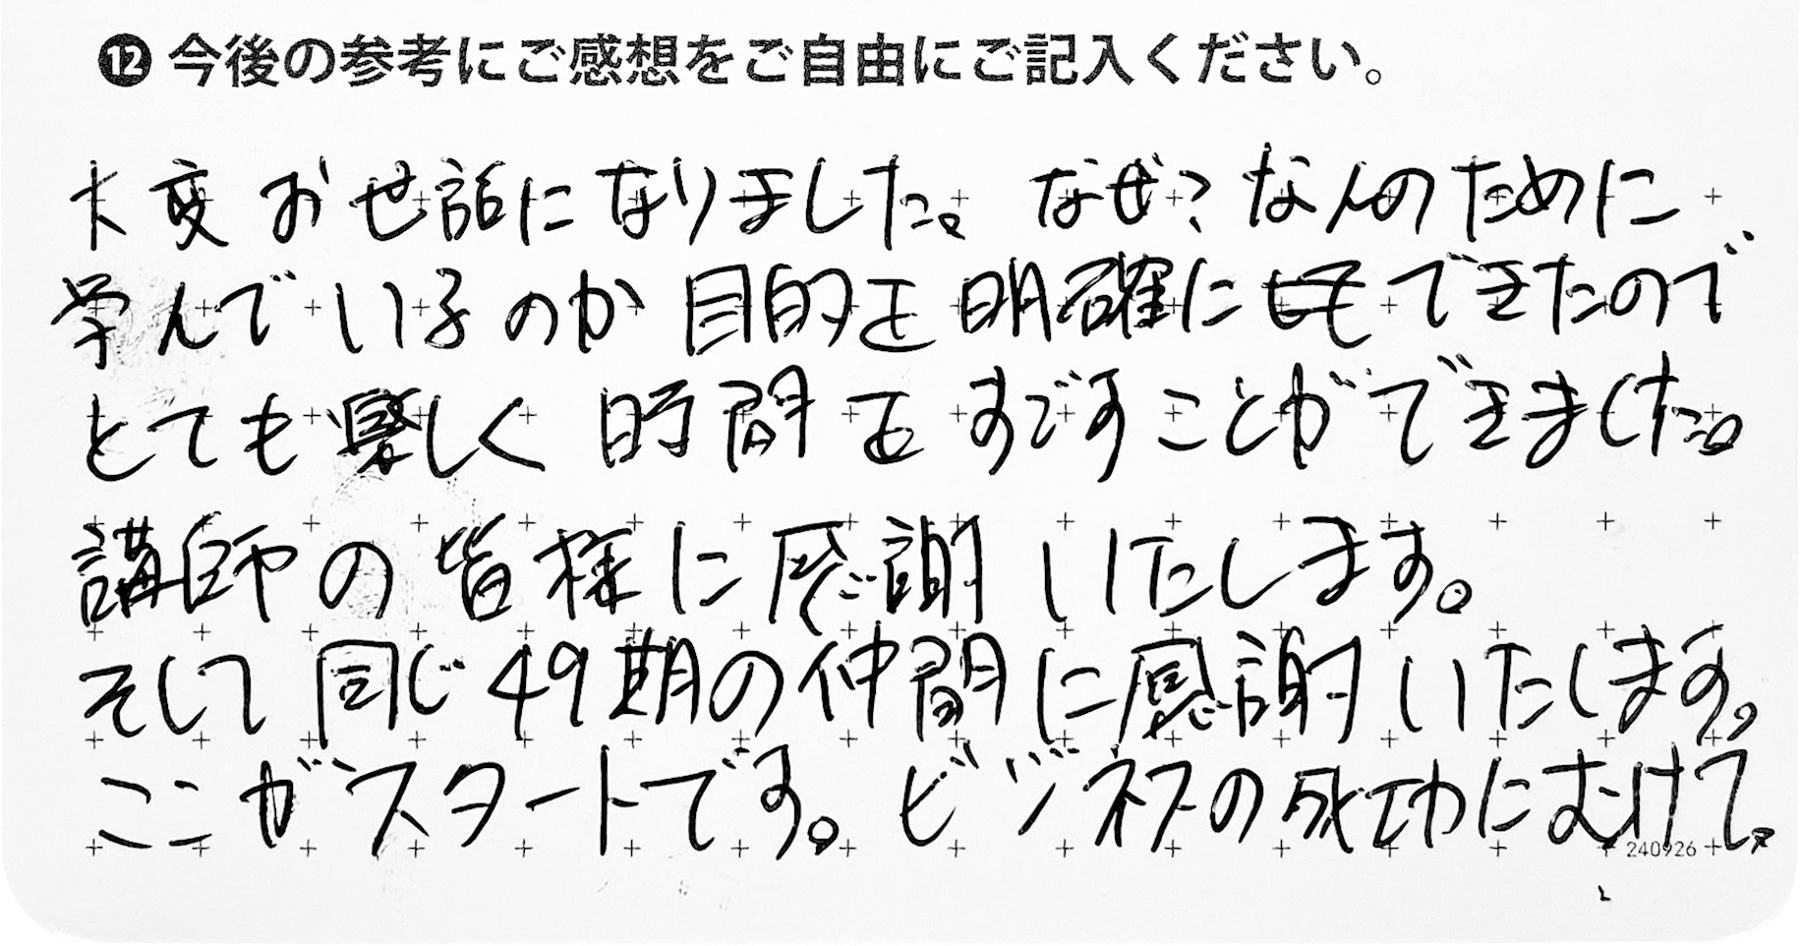 ⑫ 今後の参考にご感想をご自由にご記入ください。
大変お世話になりました。なぜ?なんのために
学んでいるのか目的を明確にもできたので
とても楽しく時間をすごすことができました。
講師の皆様に感謝いたします。
そして同じ49期の仲間に感謝いたします。
ここがスタートです。ビジネスの成功にむけて。
240926